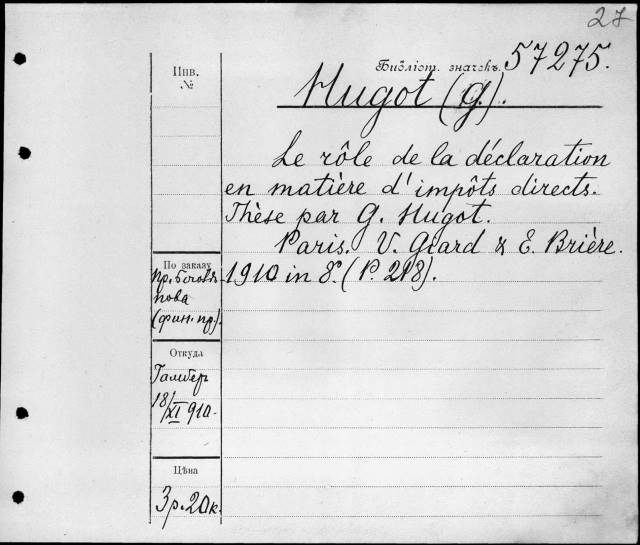 27
Инв.
№
Библіот. значекъ. 57275.
Hugot (G.).
Le rôle de la déclaration
en matière d'impôts directs.
Thèse par G. Hugot.
Paris. V. Giard & E. Brière.
1910 in 8°. (P. 218).
По заказу
пр.
пова
(фин. пр.).
Откуда
Галлер
18/XI 910.
Цѣна
3 р. 20 к.